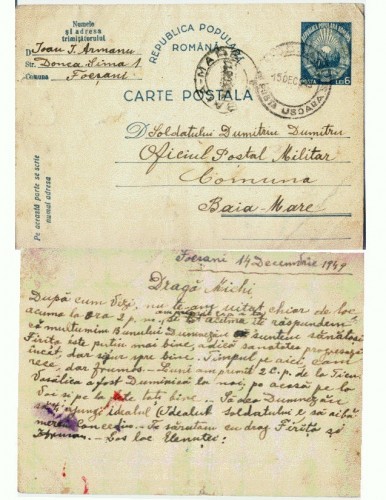 Numele
și adresa
trimițătorului
D. Ioan I. Armanu
Str. Donca Sima 1
Comuna Focșani
REPUBLICA POPULARĂ
ROMÂNĂ
CARTE POȘTALĂ
REPUBLICA POPULARA ROMANA
POSTA LEI 6
15 DEC
USOARA
D Soldatului Dumitriu Dumitru
Oficiul Postal Militar
Comuna
Baia-Mare
Pe această parte se scrie
numai adresa
Focșani 14 Decemvrie 1949
Dragă Michi
După cum vezi, nu te-am uitat chiar de loc
acuma la ora 2 p.m. îți răspundem
mulțumim Bunului Dumnezeu suntem sănătoși
Firița este puțin mai bine, adică sănătatea progresează
încet, dar sigur spre bine. Timpul pe aici, cam
rece, dar frumos. Luni am primit 2 C.p. de la Ticu
Vasilica a fost Duminică la noi, pe acasă pe la
Voi și pe la toți bine. Dumnezeu
să ajungi idealul (Idealul soldatului e să aibă
mereu concedii. Te sărutăm cu drag Firița și
Los loc Elenuței